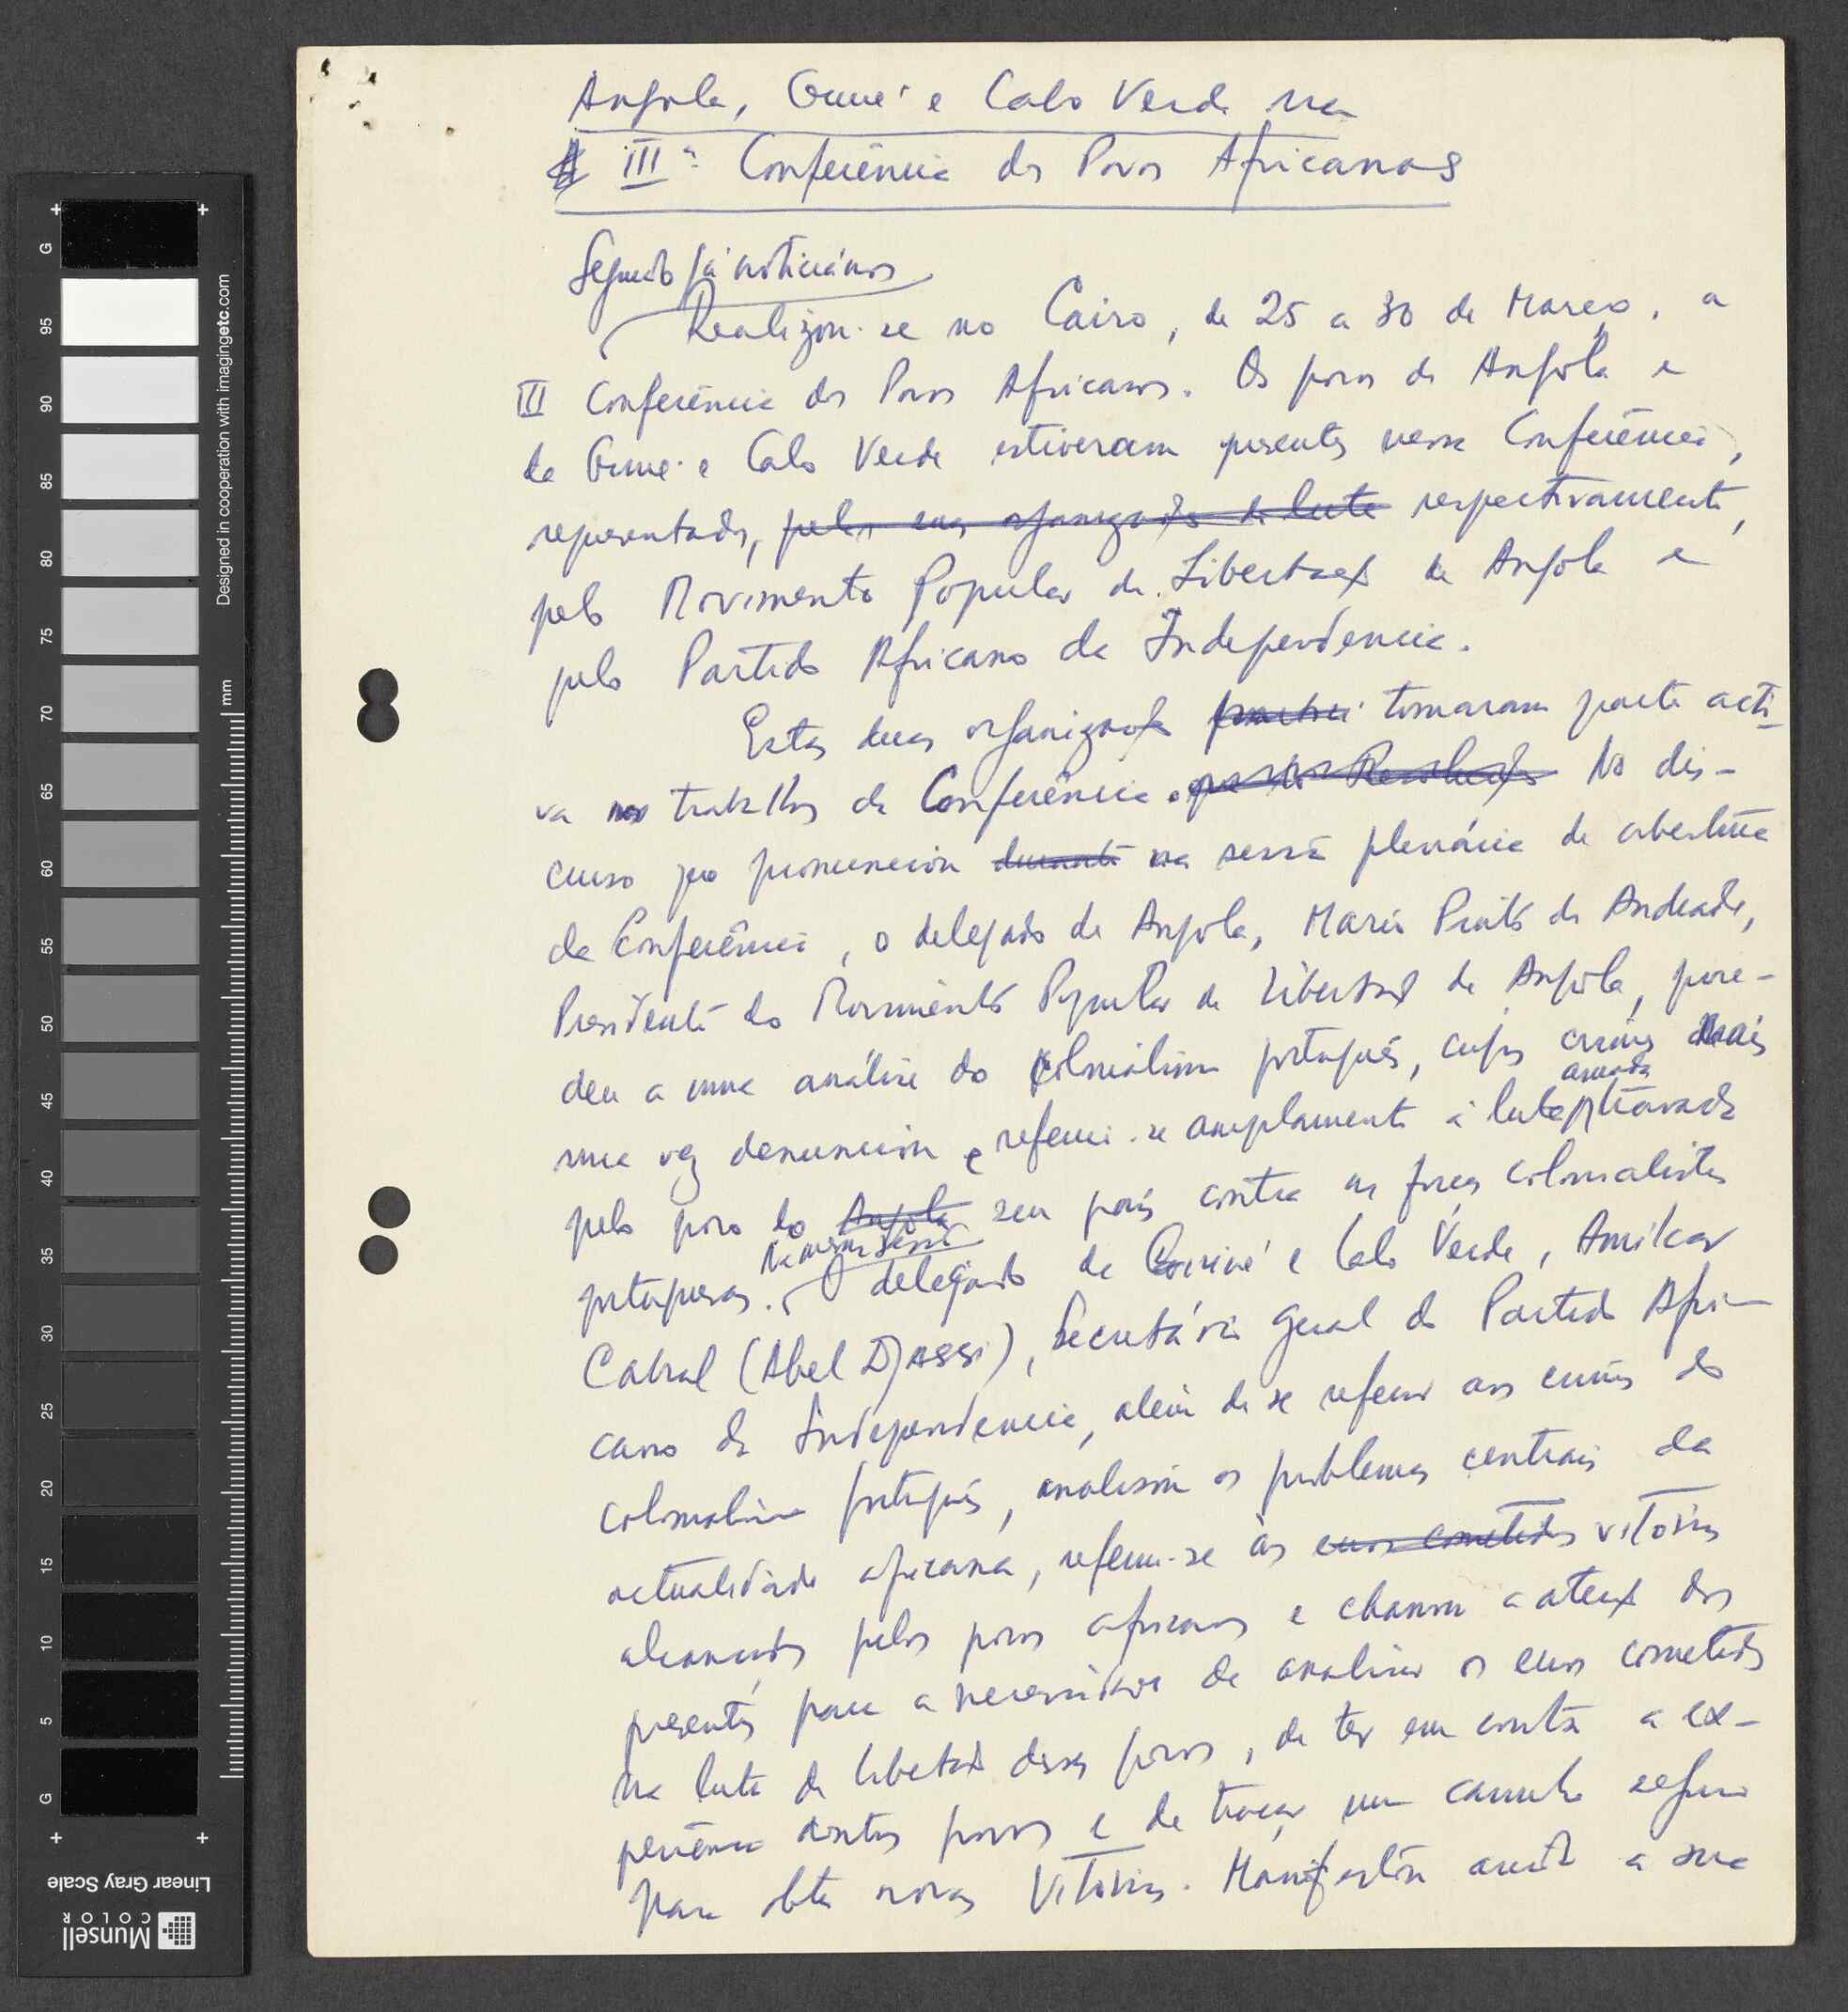 Angola, Guiné e Cabo Verde na
IIIª Conferência dos Povos Africanos
Segundo já noticiámos
Realizou-se no Cairo, de 25 a 30 de Março, a
III Conferência dos Povos Africanos. Os povos de Angola e
da Guiné e Cabo Verde estiveram presentes nessa Conferência,
representados, pelas suas organizações de luta respectivamente,
pelo Movimento Popular de Libertação de Angola e
pelo Partido Africano da Independência.
Estas duas organizações tomaram parte acti-
va nos trabalhos da Conferência. No dis-
curso que pronunciou durante na sessão plenária de abertura
da Conferência, o delegado de Angola, Mário Pinto de Andrade,
Presidente do Movimento Popular de Libertação de Angola, proce-
deu a uma análise do colonialismo português, cujos crimes mais
armada
uma vez denunciou e referiu-se amplamente à luta travada
pelo povo do Angola seu país contra as forças colonialistas
Na mesma sessão
portuguesas. O delegado da Guiné e Cabo Verde, Amílcar
Cabral (Abel Djassi), Secretário geral do Partido Afri-
cano da Independência, além de se referir aos crimes do
colonialismo português, analisou os problemas centrais da
actualidade africana, referiu-se às erros cometidos vitórias
alcançadas pelos povos africanos e chamou a atenção dos
presentes para a necessidade de analisar os erros cometidos
na luta de libertação desses povos, de ter em conta a ex-
periência doutros povos e de traçar um caminho seguro
para obter novas vitórias. Manifestou ainda a sua
G
95
90
85
80
75
70
65
60
55
50
45
40
35
30
25
20
15
10
5
G
mm
Designed in cooperation with imagingetc.com
Linear Gray Scale
Munsell
COLOR